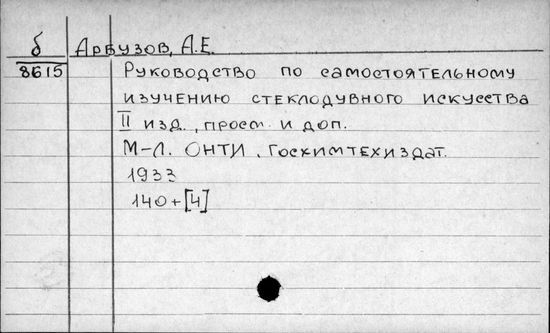 б Арбузов, А.Е.
8615 Руководство по самостоятельному
изучению стеклодувного искусства
II изд., просм. и доп.
М-Л. ОНТИ, Госхимтехиздат.
1933
140+[4]